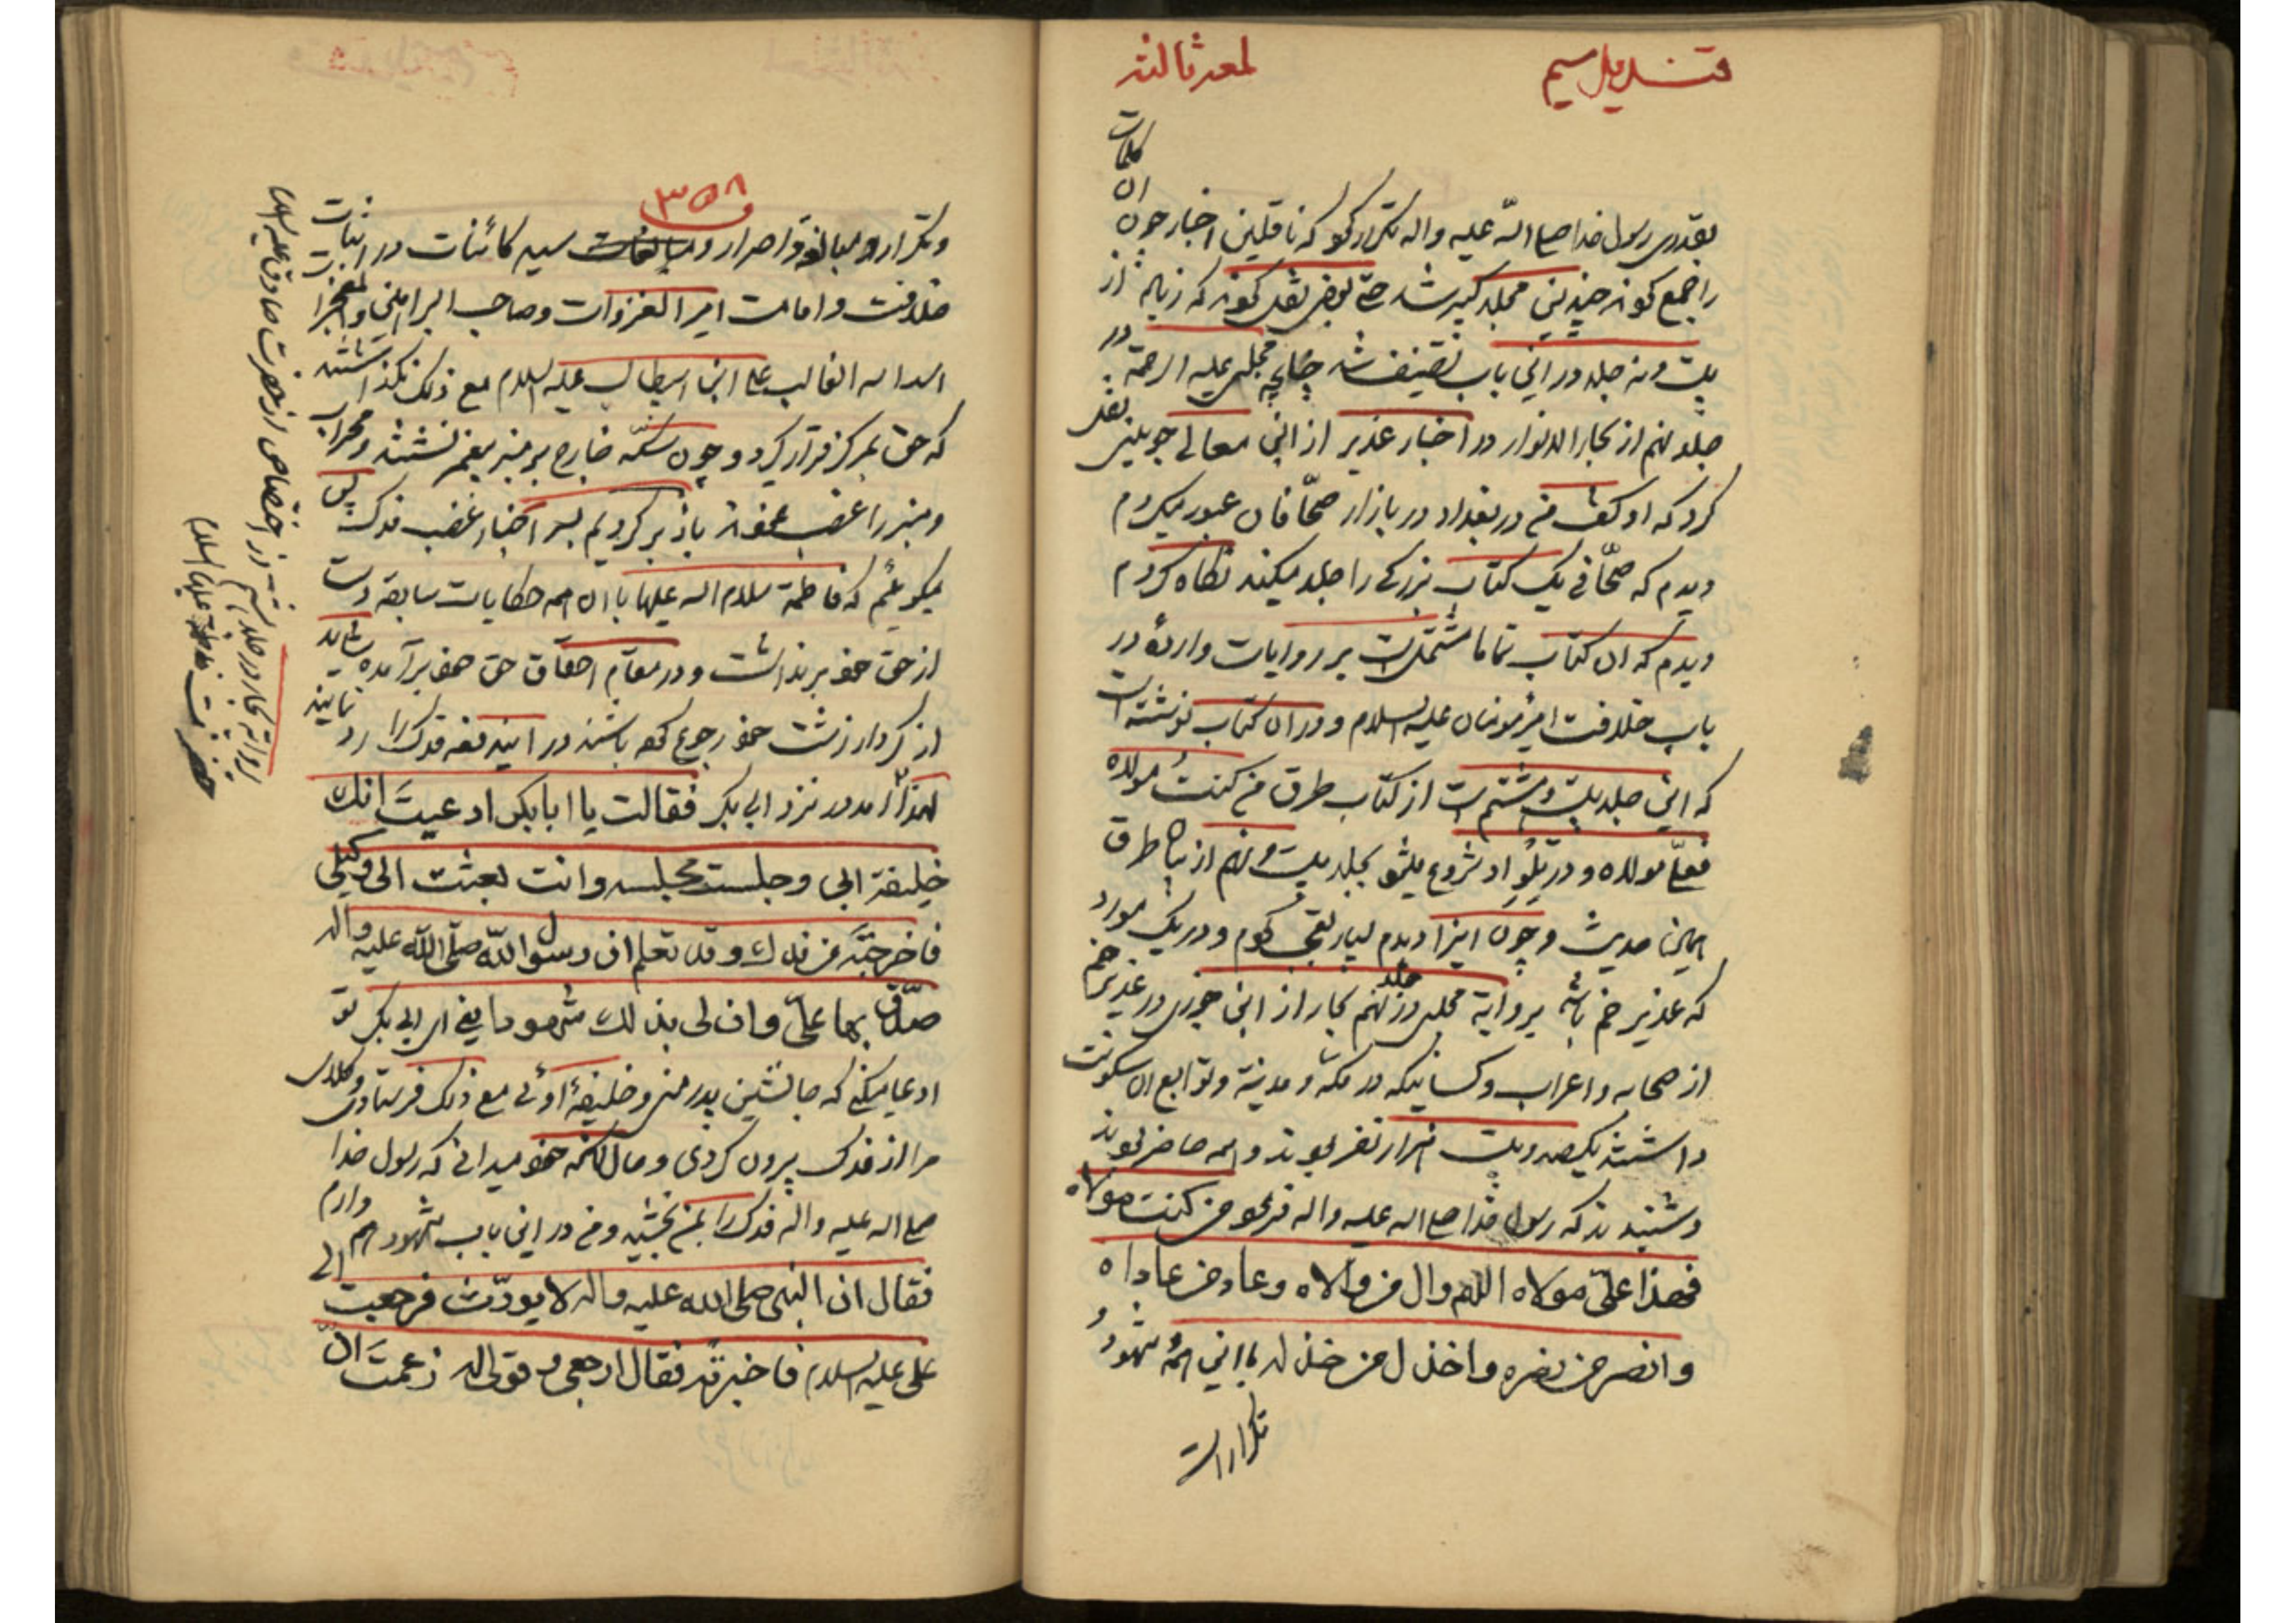 قندیل سیم
لمعه ثالثه
بقدری رسول خدا صلی الله علیه واله تکرار کرد که ناقلین اخبار چون ان کلمات
را جمع کردند چندین مجلد کبیر شد حتی بعضی نقل کردند که زیاده از
بیست ونه جلد در این باب تصنیف شد چنانچه مجلسی علیه الرحمة در
جلد نهم از بحار الانوار در اخبار غدیر از ابی معالی جوینی نقل
کرد که او گفت من در بغداد در بازار صحّافان عبور میکردم
دیدم که صحّافی یک کتاب بزرگی را جلد میکند نگاه کردم
دیدم که ان کتاب تماما مشتمل است بر روایات وارده در
باب خلافت امیرمؤمنان علیه السلام ودر ان کتاب نوشته است
که این جلد بیست وهشتم است از کتاب طرق من کنت مولاه
فعلیّ مولاه ودر تِلْوِ او شروع میشود بجلد بیست ونهم از طرق
همین حدیث وچون اینرا دیدم بسیار تعجب کردم ودر یک مورد
که غدیر خم باشد بروایة مجلسی در جلد نهم بحار از ابن جوزی در غدیر خم
از صحابه واعراب وکسانیکه در مکه ومدینة وتوابع ان سکونت
داشتند یکصد وبیست هزار نفر بودند وهمه حاضر بودند
وشنیدند که رسول خدا صلی الله علیه واله فرمود من کنت مولاه
فهذا علیّ مولاه اللهم وال من والاه وعاد من عاداه
وانصر من نصره واخذل من خذله با این همه شهود و
تکرارات
۳۵۸
وتکرار ومبالغه واصرار سید کائنات در اثبات
خلافت وامامت امیر الغزوات وصاحب البراهین والمعجزات
اسد الله الغالب علی ابن ابیطالب علیه السلام مع ذلک نگذاشتند
که حق بمرکز قرار گیرد وچون سگه خارج بر منبر پیغمبر نشستند ومحراب
ومنبر را غصب نمودند باز برگردیم بسر اخبار غصب فدک پس
میگوئیم که فاطمة سلام الله علیها با ان همه حکایات سابقه دست
از حق خود برنداشت ودر مقام احقاق حق خود برآمده شاید
از کردار زشت خود رجوع کرده باشند در ایندفعه فدک را رد نمایند
لهذا آمدند نزد ابی بکر فقالت یا ابا بکر ادعیتَ انك
خلیفة ابی وجلست مجلسه وانت بعثت الی وکیلی
فاخرجتَه من فدك وقد تعلم ان رسول الله صلّی الله علیه واله
صدّق بها علیّ وان لی بذلك شهودا یعنی ای ابی بکر تو
ادعا میکنی که جانشین پدر منی وخلیفهٔ اوئی مع ذلک فرستادی وکلای
مرا از فدک بیرون کردی وحال آنکه خود میدانی که رسول خدا
صلی الله علیه واله فدک را بمن بخشید ومن در این باب شهود هم دارم
فقال ان النبی صلی الله علیه واله لا یورّث فرجعت الی
علی علیه السلام فاخبرته فقال ارجعی وقولی له زعمتَ انّ
در اختصاص از حضرت صادق علیه السلام